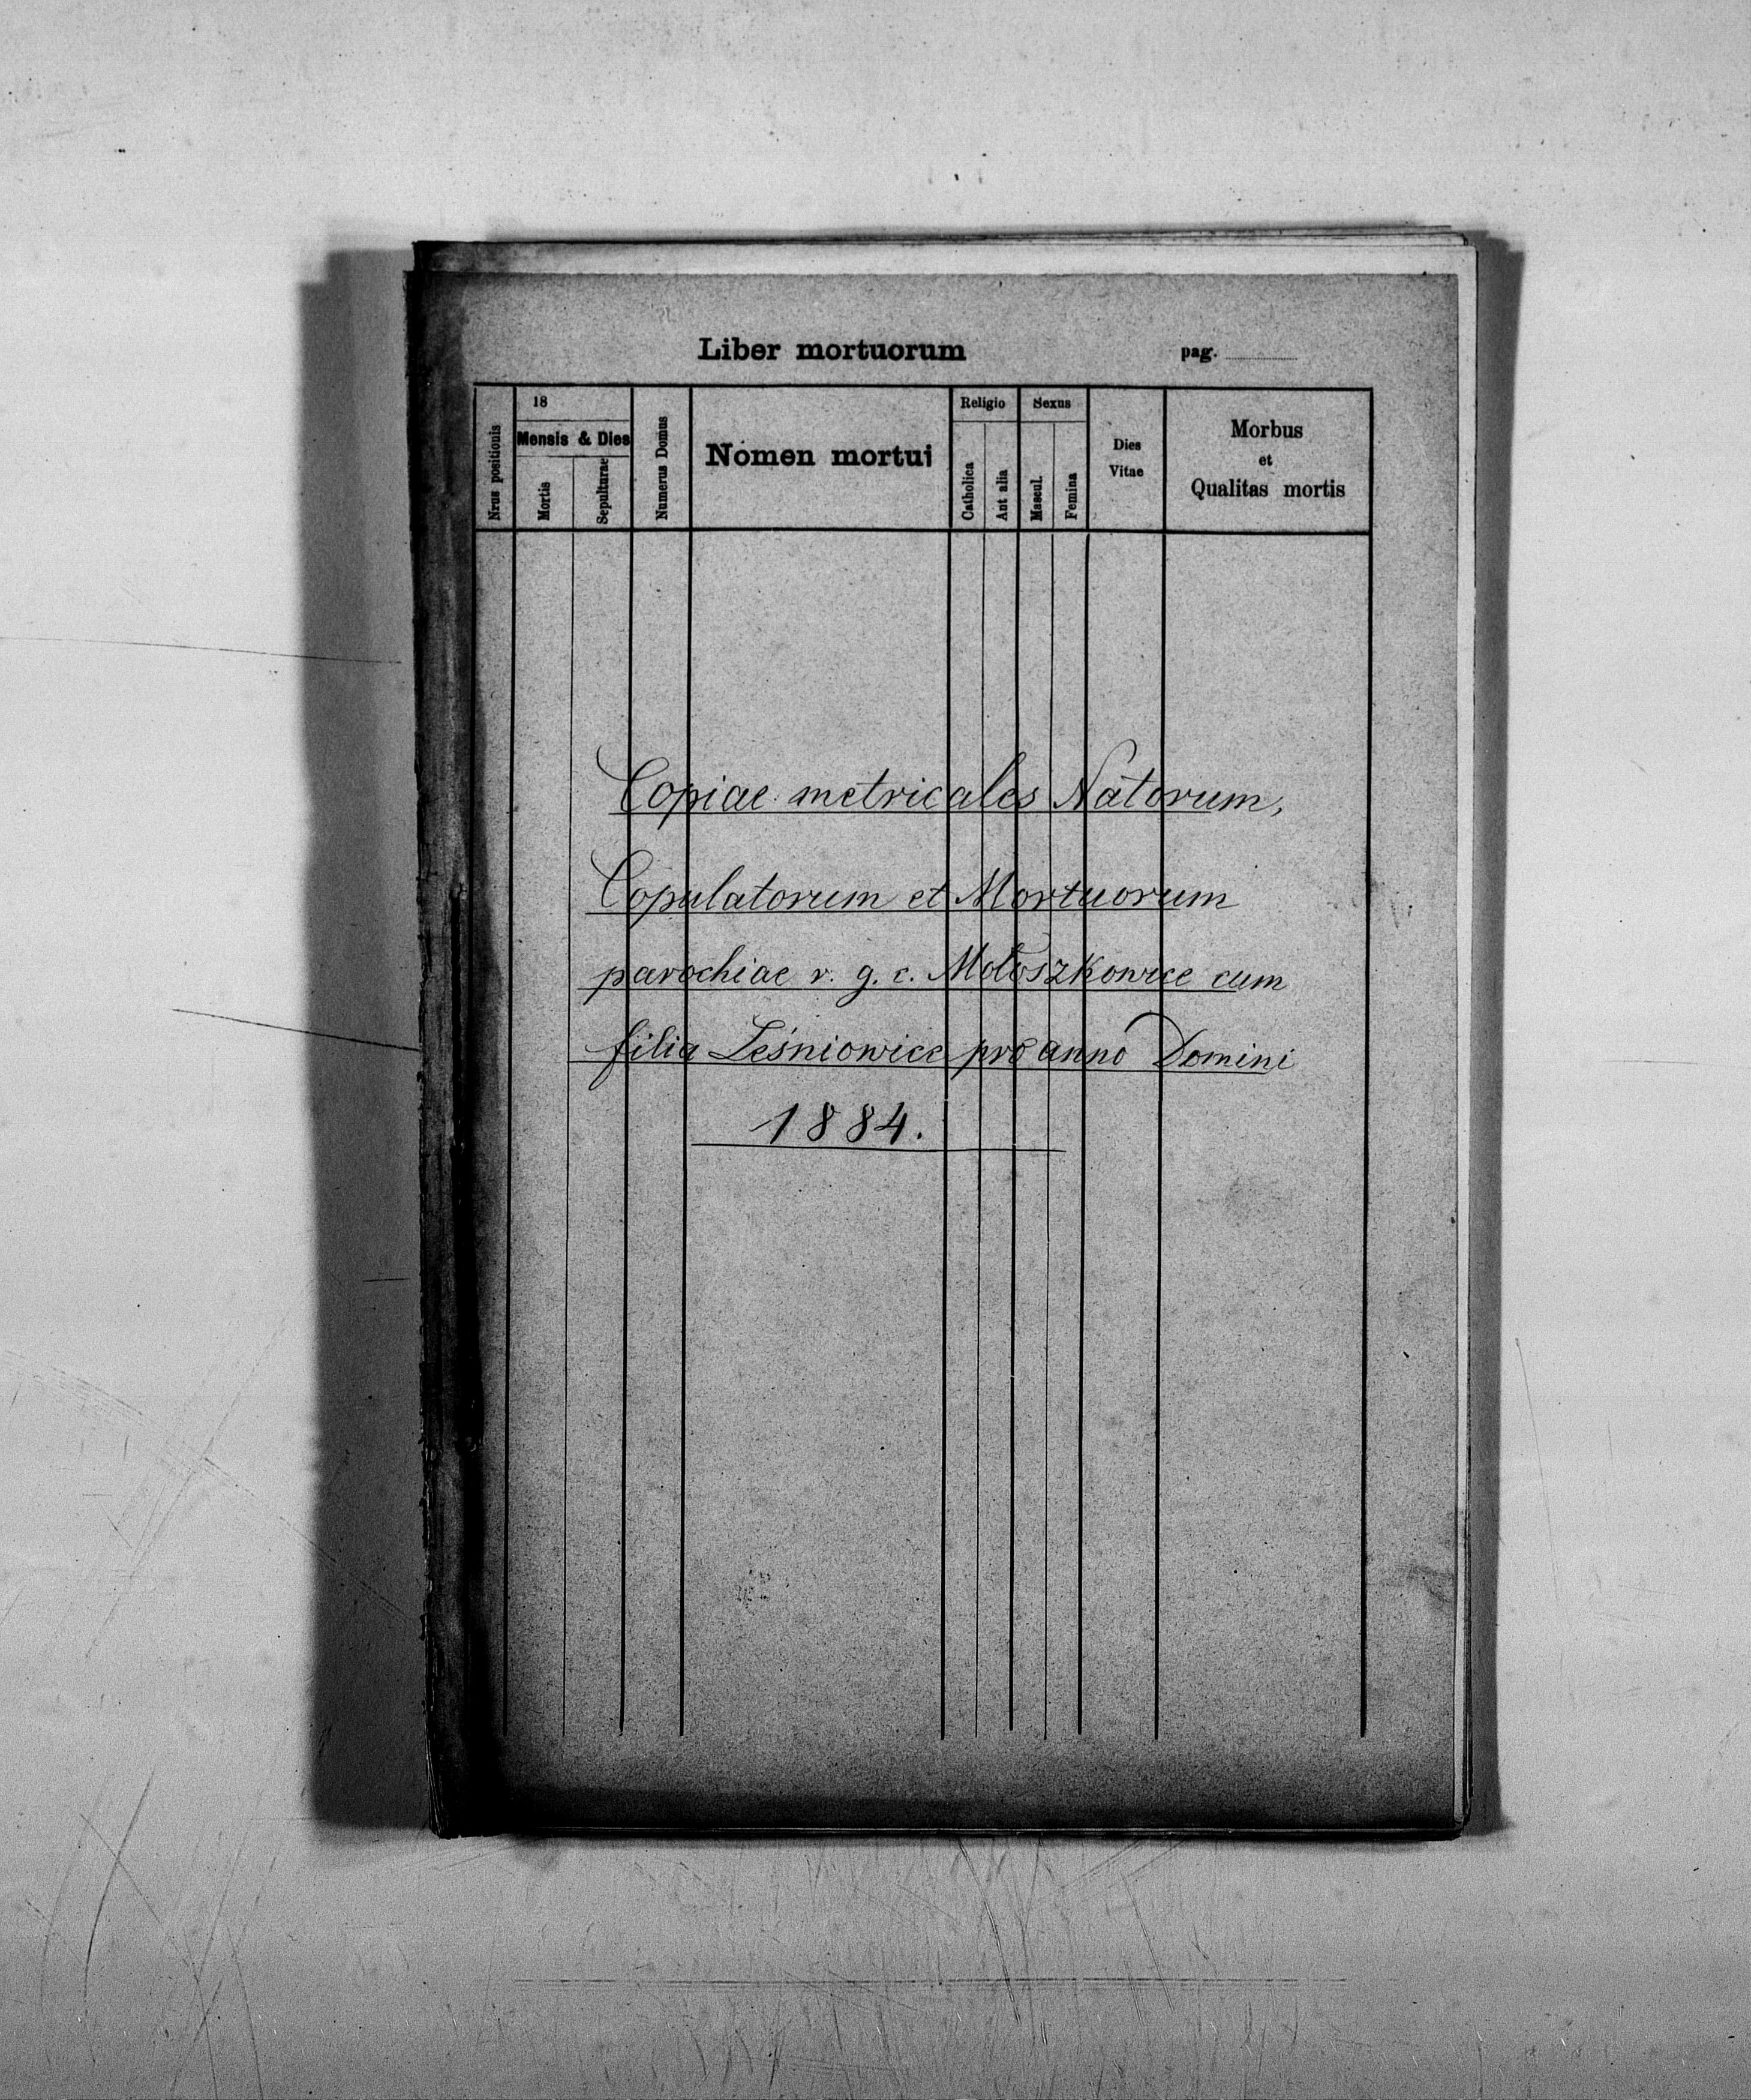 Liber mortuorum pag.
Nrus positionis
18
Mensis & Dies
Mortis
Sepulturae
Numerus Domus
Nomen mortui
Religio
Catholica
Aut alia
Sexus
Mascul.
Femina
Dies
Vitae
Morbus
et
Qualitas mortis
Copiae metricales Natorum,
Copulatorum et Mortuorum
parochiae r. g. c. Mołoszkowice cum
filia Leśniowice pro anno Domini
1884.